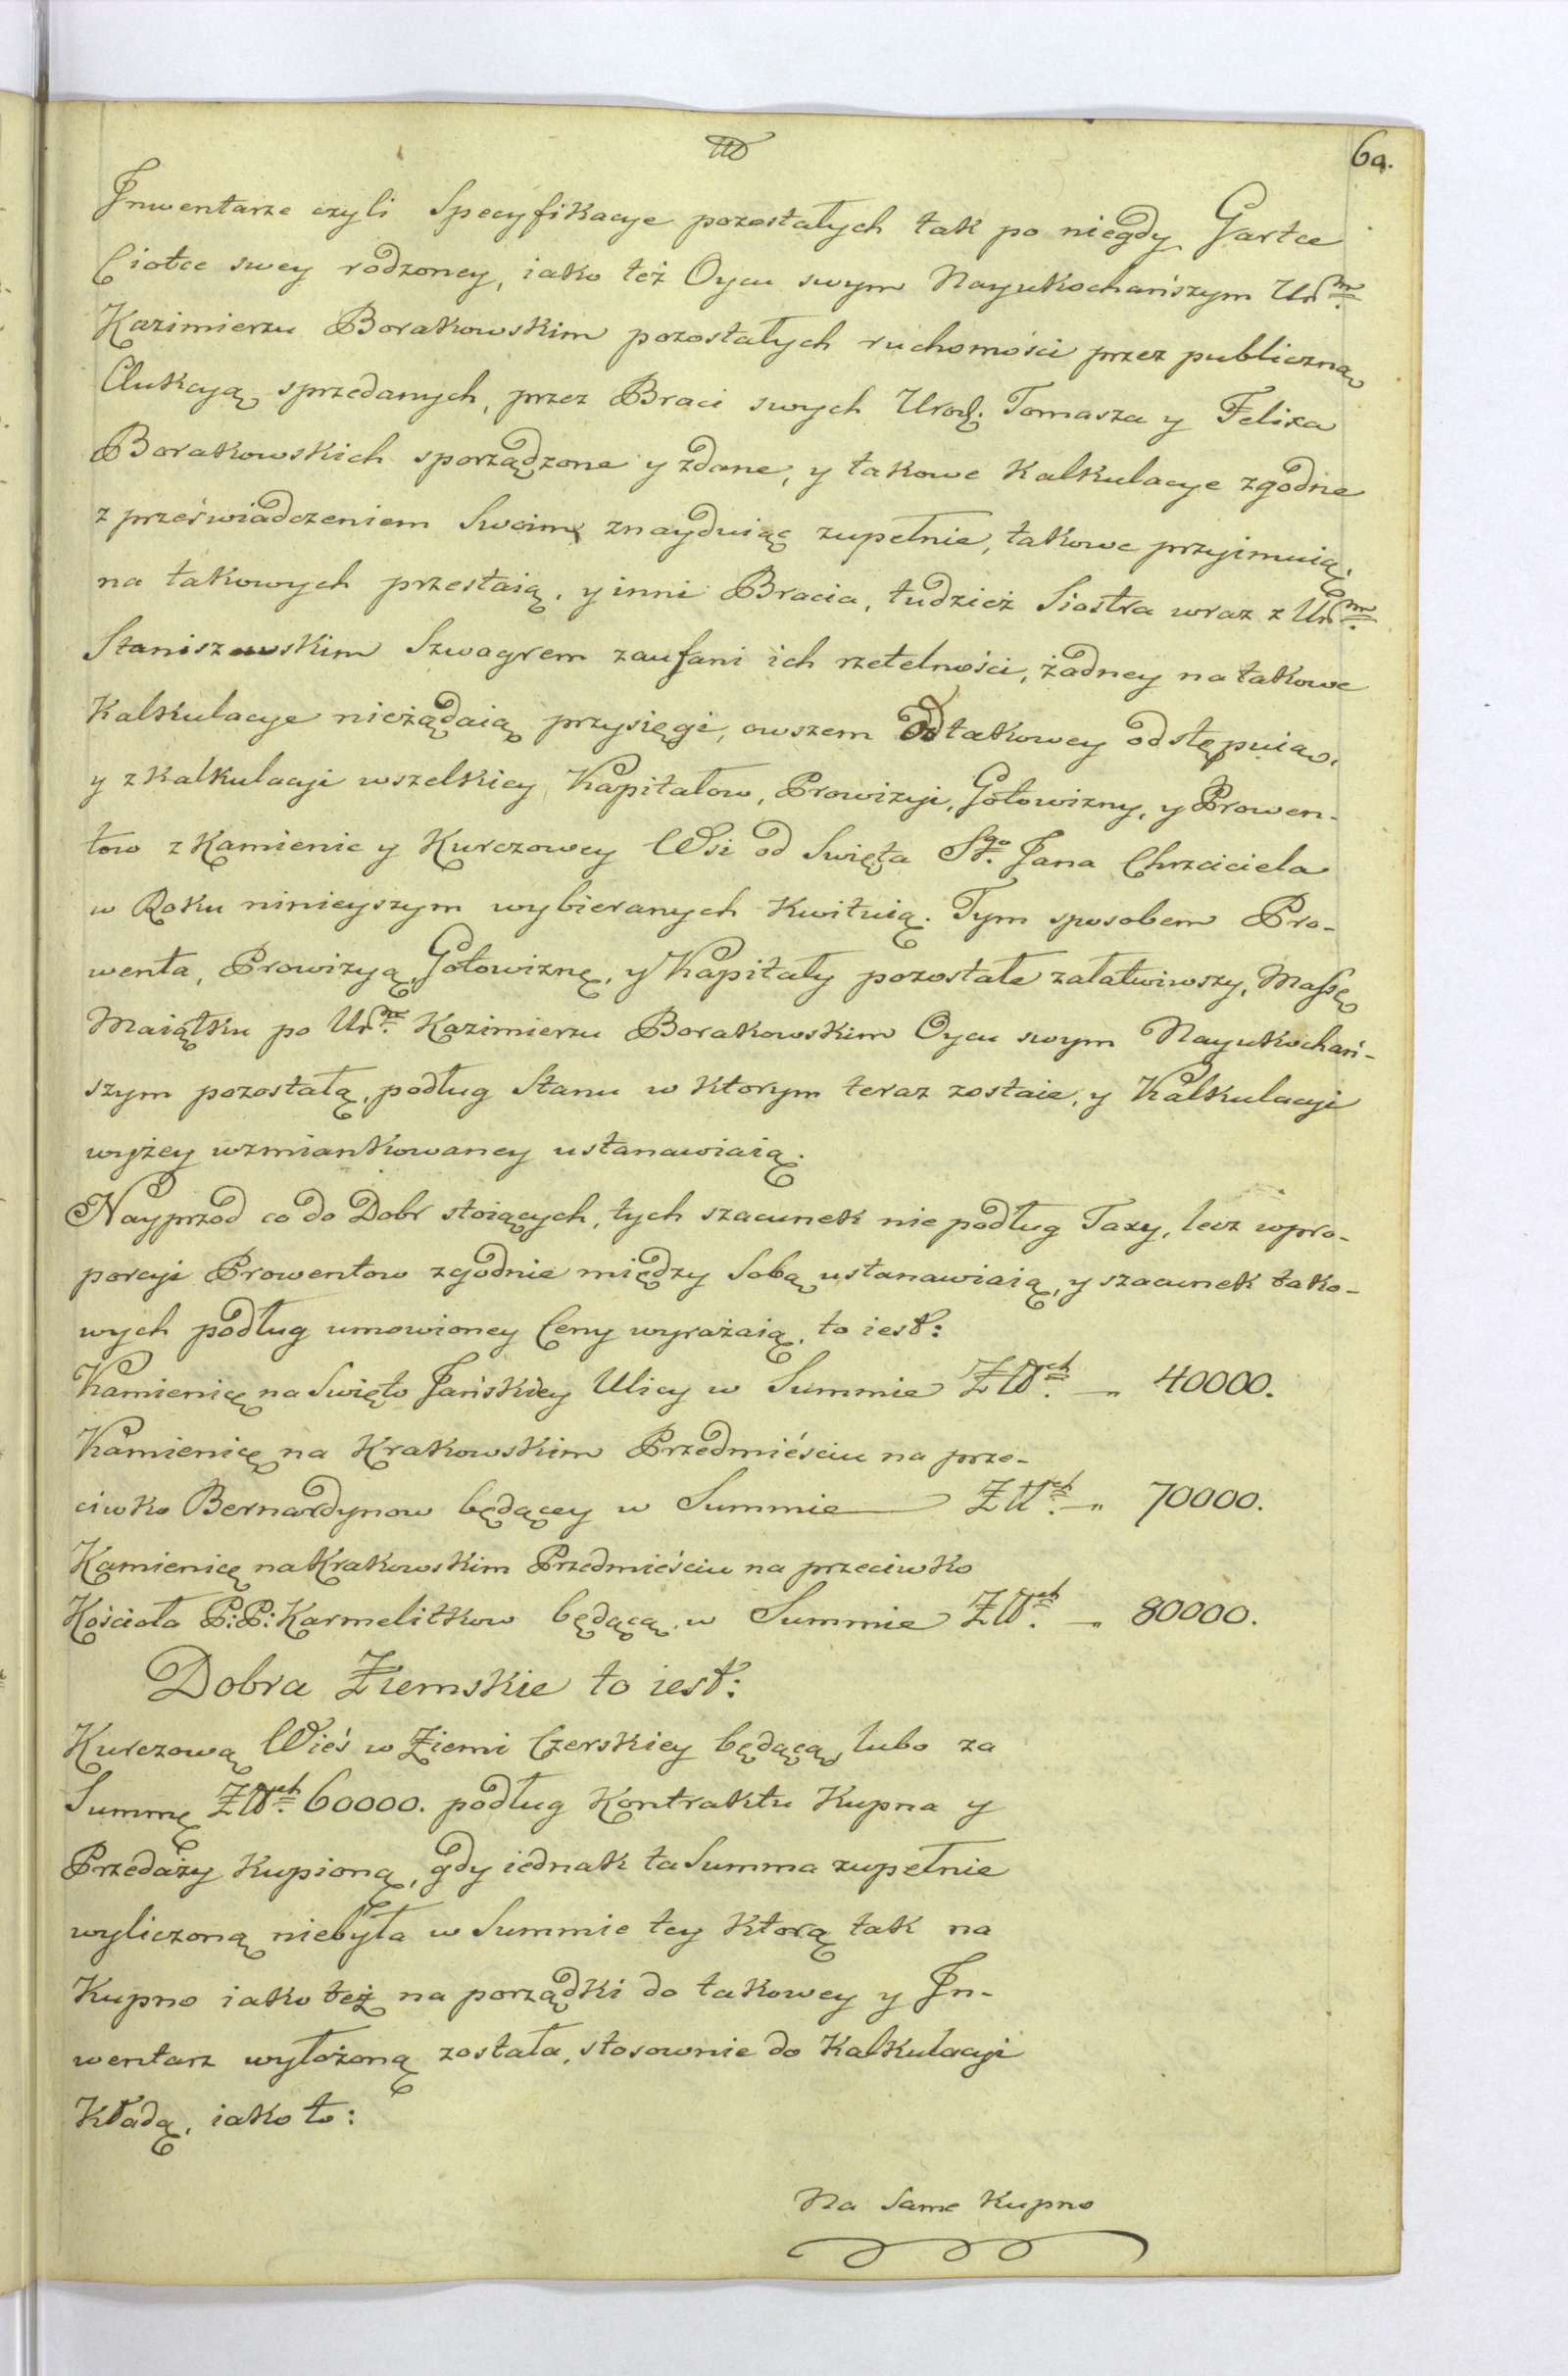 60.
Inwentarze czyli Specyfikacye pozostałych tak po niegdy Gartce
Ciotce swey rodzoney, iako też Oycu swym Nayukochańszym Ur<sup>m</sup>.
Kazimierzu Borakowskim pozostałych ruchomości przez publiczną
Aukcyą sprzedanych, przez Braci swych Urod. Tomasza y Felixa
Borakowskich sporządzone y zdane, y takowe Kalkulacye zgodne
z przeświadczeniem Swoim znayduiąc zupełnie, takowe przyimuią,
na takowych przestaią, y inni Bracia, tudzież Siostra wraz z Ur<sup>m</sup>.
Staniszewskim Szwagrem zaufani ich rzetelności, żadney na takowe
Kalkulacye nieżądaią przysięgi, owszem od takowey odstępuią,
y z Kalkulacyi wszelkiey Kapitałow, Prowizyi, Gotowizny, y Prowen-
tow z Kamienic y Kurczowey Wsi od Swięta S<sup>go</sup>. Jana Chrzciciela
w Roku ninieyszym wybieranych Kwituią. Tym sposobem Pro-
wenta, Prowizyą, Gotowiznę, y Kapitały pozostałe załatwiwszy, Massę
Maiątku po Ur<sup>m</sup>. Kazimierzu Borakowskim Oycu swym Nayukochań-
szym pozostałą, podług Stanu w ktorym teraz zostaie, y Kalkulacyi
wyżey wzmiankowaney ustanawiaią.
Nayprzod co do Dobr stoiących, tych szacunek nie podług Taxy, lecz w pro-
porcyi Prowentow zgodnie między Sobą ustanawiaią, y szacunek tako-
wych podług umowioney Ceny wyrażaią, to iest:
Kamienicę na Swięto Jańskiey Ulicy w Summie Zł<sup>ch</sup>. — „ 40000.
Kamienicę na Krakowskim Przedmieściu na prze-
ciwko Bernardynow będącey w Summie — Zł<sup>ch</sup>. — „ 70000.
Kamienicę na Krakowskim Przedmieściu na przeciwko
Kościoła P:P: Karmelitkow będącą w Summie Zł<sup>ch</sup>. — „ 80000.
Dobra Ziemskie to iest:
Kurczową Wieś w Ziemi Czerskiey będącą, lubo za
Summę Zł<sup>ch</sup>. 60000. podług Kontraktu Kupna y
Przedaży Kupioną, gdy iednak ta Summa zupełnie
wyliczoną niebyła w Summie tey ktorą tak na
Kupno iako też na porządki do takowey y In-
wentarz wyłożoną została, stosownie do Kalkulacyi
Kładą, iako to:
Na Same Kupno